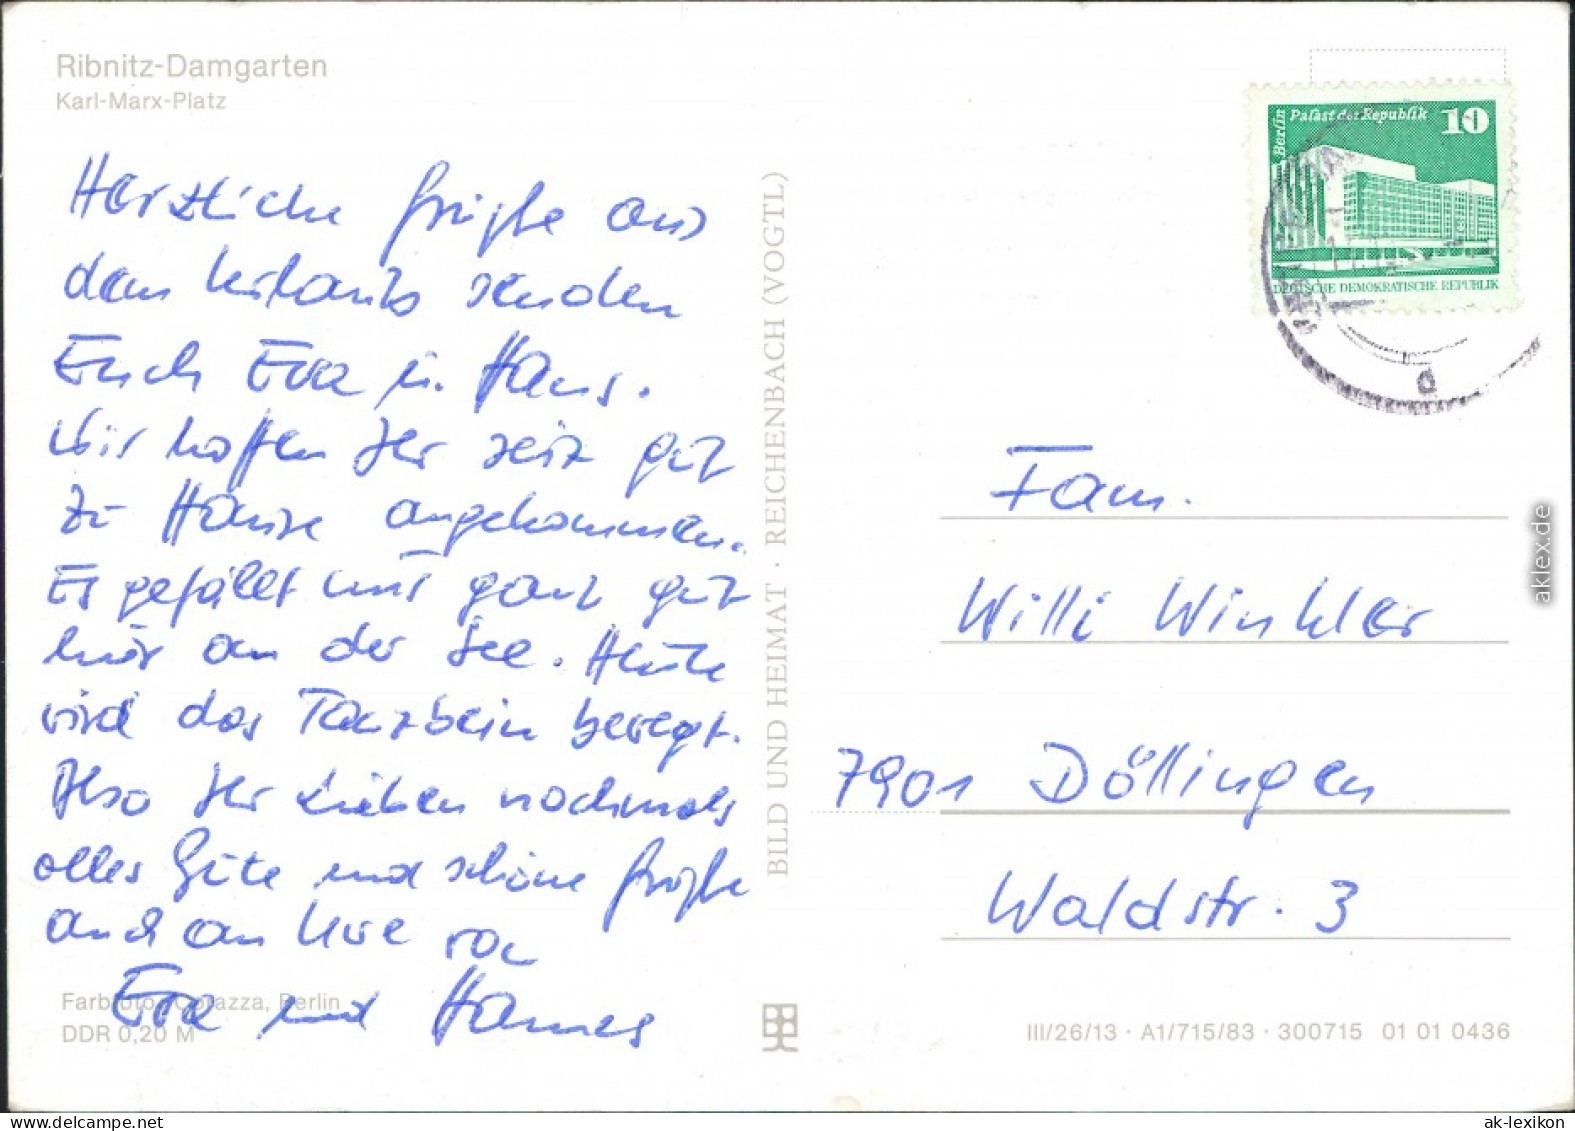 Ribnitz-Damgarten
Karl-Marx-Platz
Herzliche Grüße aus
dem Urlaub senden
Euch Eva u. Hans.
Wir hoffen Ihr seit gut
zu Hause angekommen.
Es gefällt uns ganz gut
hier an der See. Heute
wird das Tanzbein bewegt.
Also Ihr Lieben nochmals
alles Gute und schöne Grüße
auch an Uwe von
Eva und Hannes
Farbfoto: Corazza, Berlin
DDR 0,20 M
BILD UND HEIMAT · REICHENBACH (VOGTL)
Berlin
Palast der Republik 10
DEUTSCHE DEMOKRATISCHE REPUBLIK
D
Fam.
Willi Winkler
7901 Döllingen
Waldstr. 3
III/26/13 · A1/715/83 · 300715 01 01 0436
aklex.de
ak-lexikon